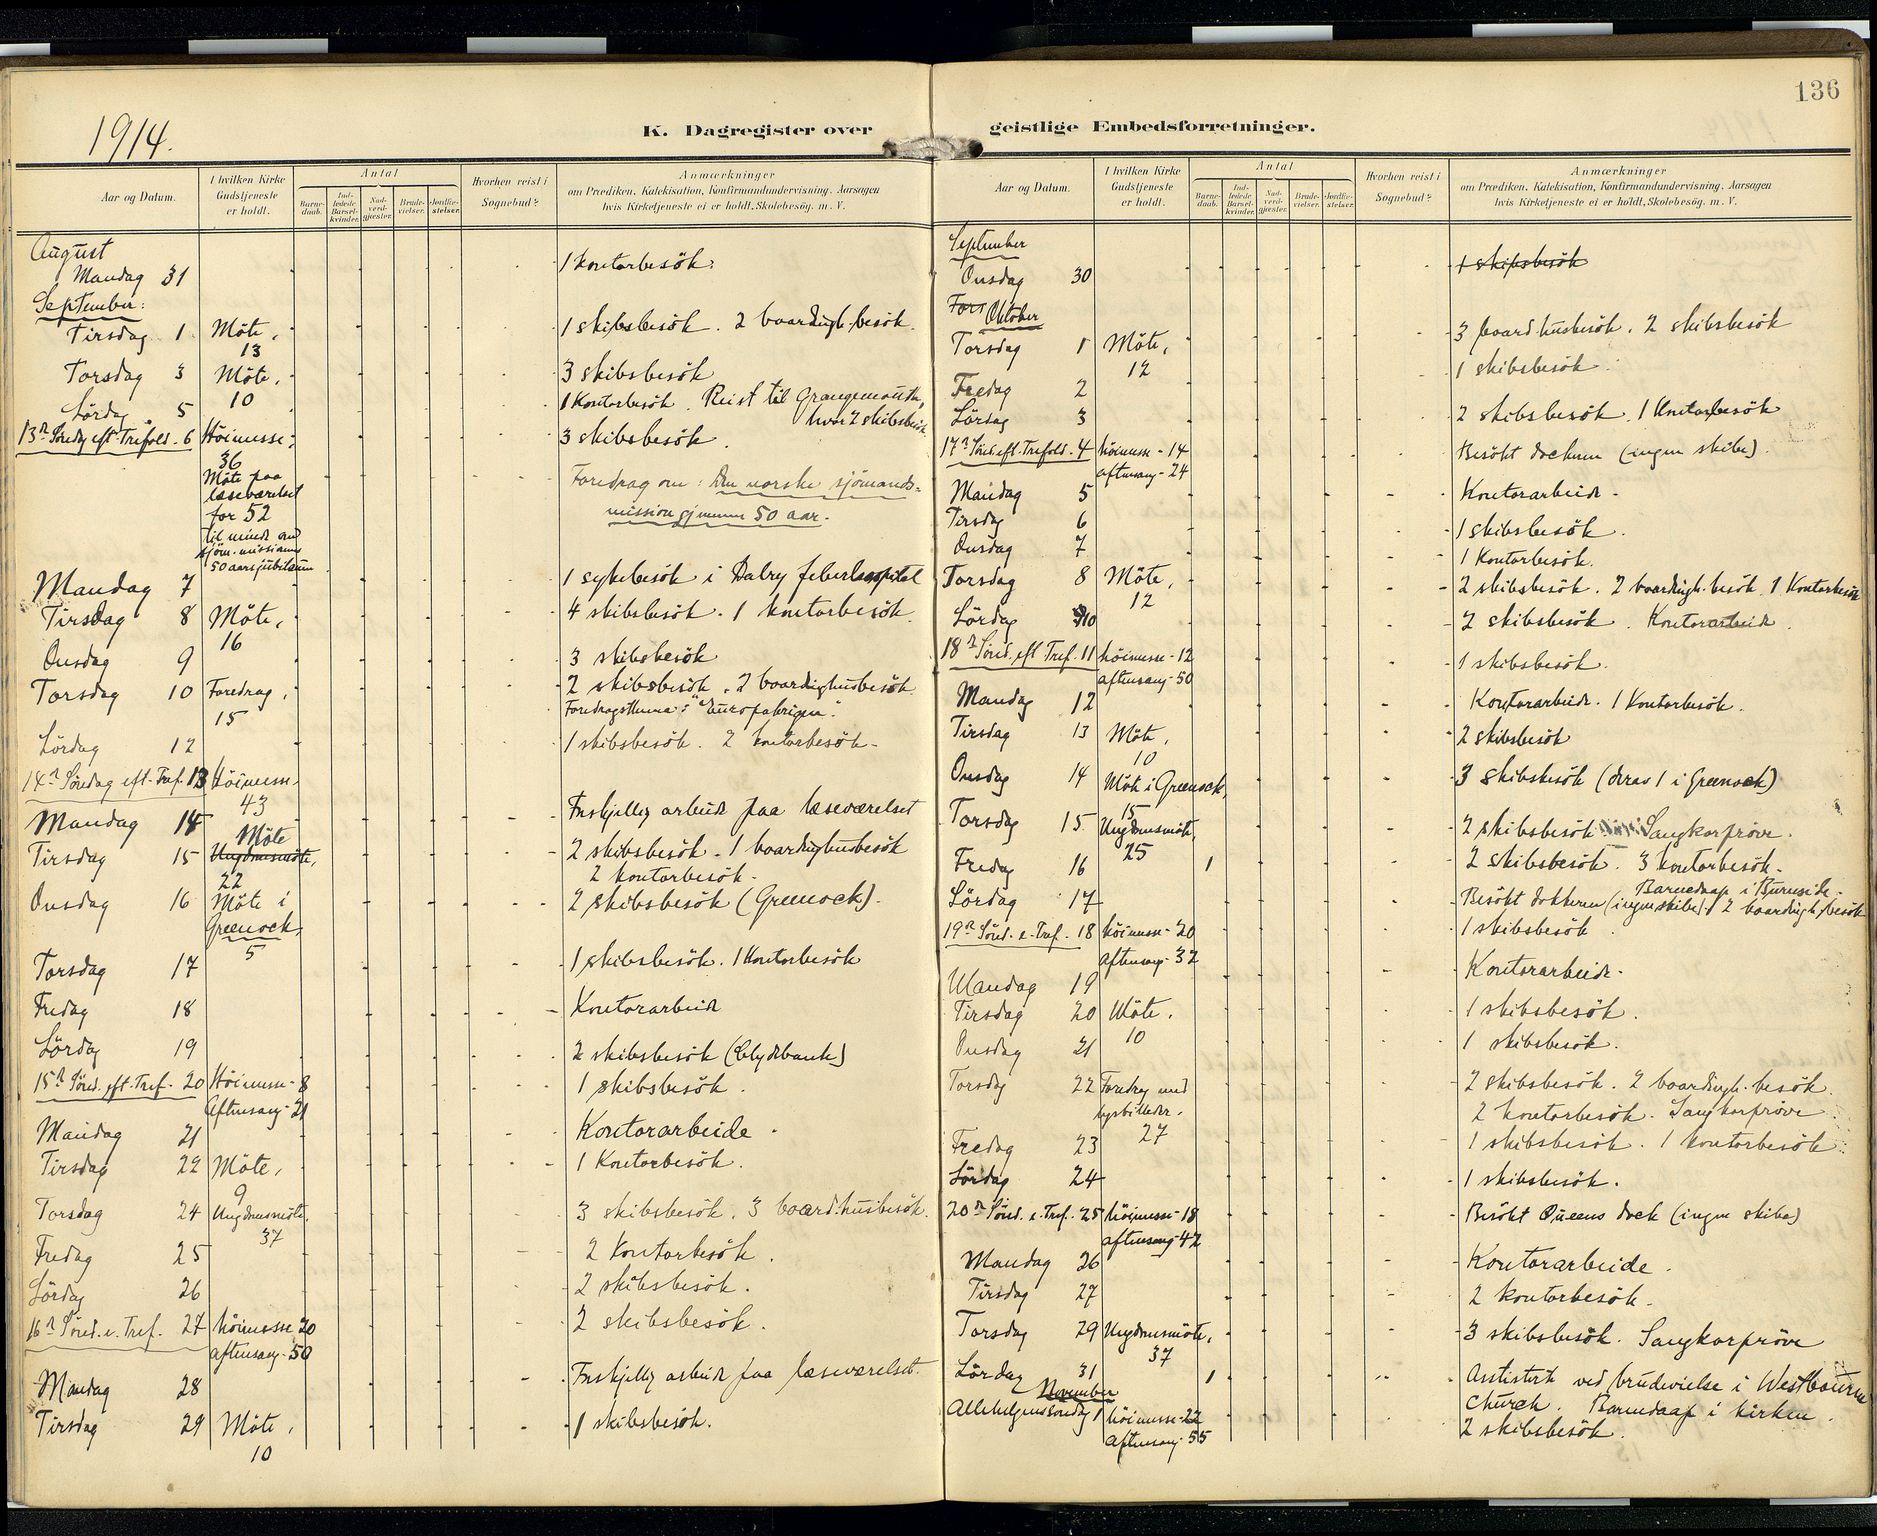 136
1914.
K. Dagregister over
Aar og Datum.
I hvilken Kirke
Gudstjeneste
er holdt.
Antal
Barne-
daab.
Ind-
ledede
Barsel-
kvinder.
Nad-
verd-
gjester.
Brude-
vielser.
Jordfæ-
stelser.
Hvorhen reist i
Sognebud?
Anmærkninger
om Prædiken, Katekisation, Konfirmandundervisning, Aarsagen
hvis Kirketjeneste ei er holdt, Skolebesøg. m. V.
August
Mandag 31 1 kontorbesök.
September:
Tirsdag 1 Möte, 1 skibsbesök. 2 boardingh. besök.
13
Torsdag 3 Möte, 3 skibsbesök
10
Lördag 5 1 Kontorbesök. Reist til Grangemouth,
hvor 2 skibsbesök
13n Söndag eft. Trefold. 6 Höimesse, 3 skibsbesök.
36
Möte paa
læseværelset
for 52
til minde om
sjöm. missions
50 aarsjubilæum
Foredrag om: Den norske sjömands-
mission gjennem 50 aar.
Mandag 7 1 sykebesök i Dalry feberhospital
Tirsdag 8 Möte, 4 skibsbesök. 1 kontorbesök.
16
Onsdag 9 3 skibsbesök
Torsdag 10 Foredrag, 2 skibsbesök. 2 boardinghusbesök
15
Foredragsthema:
Lördag 12 1 skibsbesök. 2 kontorbesök.
14n Söndag eft. Tref. 13 Höimesse,
43
Mandag 14 Forskjellig arbeide paa læseværelset
Möte
Tirsdag 15 Ungdomsmöte, 2 skibsbesök. 1 boardinghusbesök
22 2 kontorbesök.
Onsdag 16 Möte i 2 skibsbesök (Greenock).
Greenock,
5
Torsdag 17 1 skibsbesök. 1 Kontorbesök
Fredag 18 Kontorarbeide
Lördag 19 2 skibsbesök (Clydebank)
15n Sönd. eft. Tref. 20 Höimesse - 8 1 skibsbesök.
Aftensang - 21
Mandag 21 Kontorarbeide.
Tirsdag 22 Möte, 1 Kontorbesök.
9
Torsdag 24 Ungdomsmöte, 3 skibsbesök. 3 board.husbesök.
37
Fredag 25 2 Kontorbesök.
Lördag 26 2 skibsbesök.
16n Sönd. e. Tref. 27 höimesse 20 2 skibsbesök.
aftensang - 50
Mandag 28 Forskjellig arbeide paa læseværelset.
Tirsdag 29 Möte, 1 skibsbesök.
10
geistlige Embedsforretninger.
Aar og Datum.
I hvilken Kirke
Gudstjeneste
er holdt.
Antal
Barne-
daab.
Ind-
ledede
Barsel-
kvinder.
Nad-
verd-
gjester.
Brude-
vielser.
Jordfæ-
stelser.
Hvorhen reist i
Sognebud?
Anmærkninger
om Prædiken, Katekisation, Konfirmandundervisning, Aarsagen
hvis Kirketjeneste ei er holdt, Skolebesøg. m. V.
September
Onsdag 30 1 skibsbesök
Tors
Oktober
Torsdag 1 Möte, 3 board.husbesök. 2 skibsbesök
12
Fredag 2 1 skibsbesök.
Lördag 3 2 skibsbesök. 1 Kontorbesök
17n Sönd. eft. Trefold. 4 höimesse - 14 Besökt dockene (ingen skibe).
aftensang - 24
Mandag 5 Kontorarbeide.
Tirsdag 6 1 skibsbesök.
Onsdag 7 1 Kontorbesök.
Torsdag 8 Möte, 2 skibsbesök. 2 boardingh. besök. 1 Kontorbesök
12
Lördag 10 2 skibsbesök. Kontorarbeide.
18n Sönd. eft Tref. 11 höimesse - 12 1 skibsbesök.
aftensang - 50
Mandag 12 Kontorarbeide. 1 Kontorbesök.
Tirsdag 13 Möte, 2 skibsbesök
10
Onsdag 14 Möte i Greenock, 3 skibsbesök (derav 1 i Greenock)
15
Torsdag 15 Ungdomsmöte, 2 skibsbesök Sangkorpröve.
25
Fredag 16 1 2 skibsbesök. 3 kontorbesök.
Barnedaap i Burnside.
Lördag 17 Besökt dokkene (ingen skibe). 2 boardingh. besök
19n Sönd. e. Tref. 18 höimesse - 20 1 skibsbesök.
aftensang - 32
Mandag 19 Kontorarbeide.
Tirsdag 20 Möte. 1 skibsbesök.
10
Onsdag 21 1 skibsbesök.
Torsdag 22 Foredrag med 2 skibsbesök. 2 boardingh. besök.
lysbilleder, 2 kontorbesök. Sangkorpröve.
27
Fredag 23 1 skibsbesök. 1 kontorbesök.
Lördag 24 1 skibsbesök.
20n Sönd. e. Tref. 25 höimesse - 18 Besökt Queens dock (ingen skibe)
aftensang - 42
Mandag 26 Kontorarbeide.
Tirsdag 27 2 kontorbesök.
Torsdag 29 Ungdomsmöte, 3 skibsbesök. Sangkorpröve
37
Lördag 31 1 Assistert ved brudevielse i Westbourne
Church. Barnedaap i kirken.
November
Allehelgenssöndag 1 höimesse - 22 2 skibsbesök.
aftensang - 55